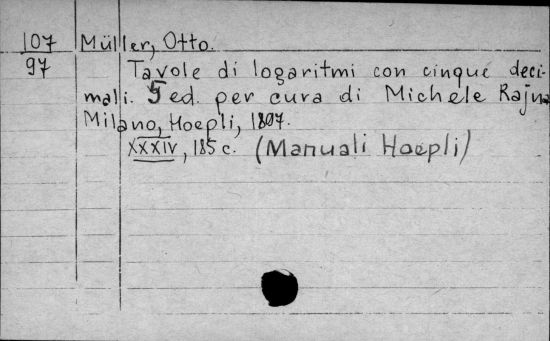 107
97
Müller, Otto.
Tavole di logaritmi con cinque deci-
mali. 5 ed. per cura di Michele Rajna
Milano, Hoepli, 1897.
XXXIV, 185 c. (Manuali Hoepli)